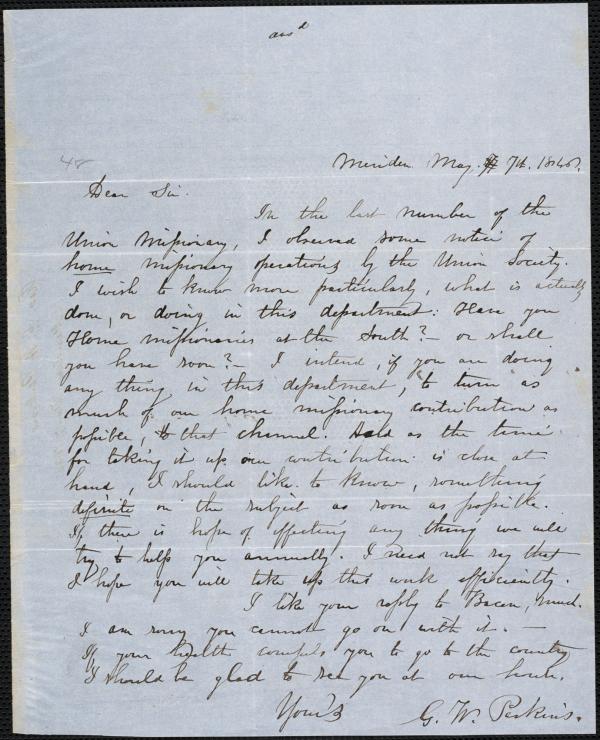 ansd
48
Meriden May 7th. 1846.
Dear Sir.
In the last number of the
Union Missionary, I observed some notice of
home missionary operations by the Union Society.
I wish to know more particularly, what is actually
done, or doing in this department: Have you
Home missionaries at the South? - or shall
you have soon? - I intend, if you are doing
any thing in this department, to turn as
much of our home missionary contribution as
possible, to that channel. And as the time
for taking it up our contribution is close at
hand, I should like to know, something
definite on the subject as soon as possible.
If there is hope of effecting any thing we will
try to help you annually. I need not say that
I hope you will take up this work efficiently.
I like your reply to Bacon, much.
I am sorry you cannot go on with it. -
If your health compels you to go to the country
I should be glad to see you at our house.
Yours
G. W. Perkins.